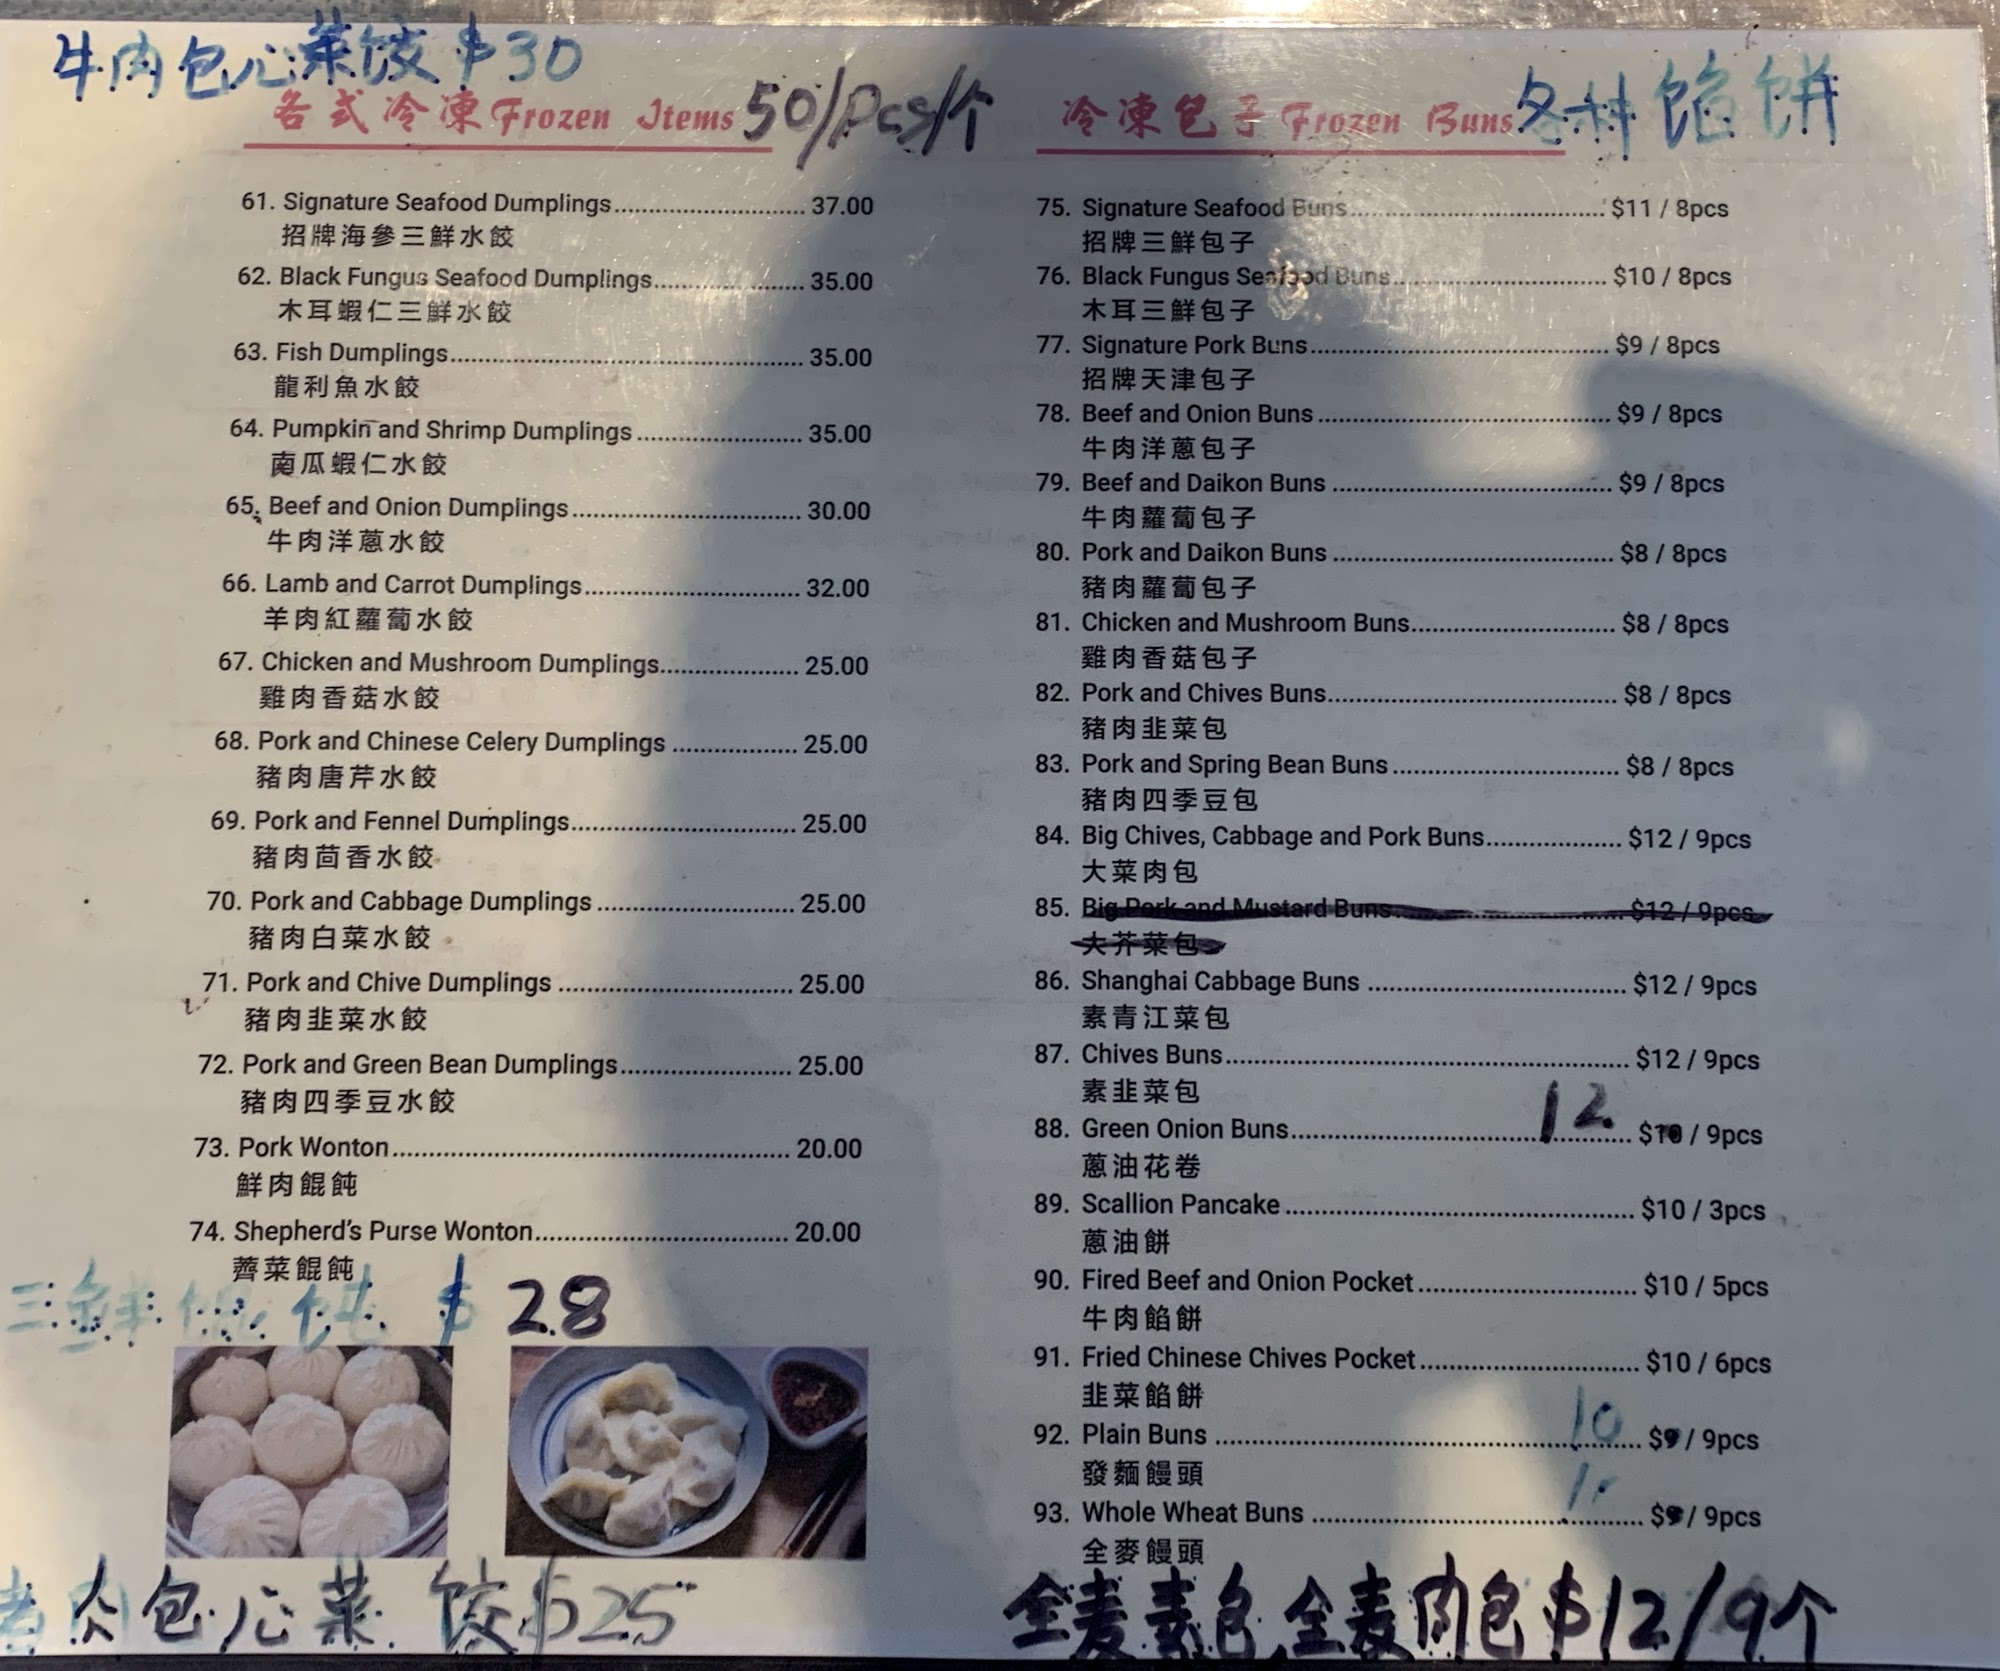 牛肉包心菜饺 $30
各式冷凍Frozen Items 50/Pcs/个
61. Signature Seafood Dumplings........................ 37.00
招牌海參三鮮水餃
62. Black Fungus Seafood Dumplings...................... 35.00
木耳蝦仁三鮮水餃
63. Fish Dumplings............................................... 35.00
龍利魚水餃
64. Pumpkin and Shrimp Dumplings...................... 35.00
南瓜蝦仁水餃
65. Beef and Onion Dumplings.............................. 30.00
牛肉洋蔥水餃
66. Lamb and Carrot Dumplings............................ 32.00
羊肉紅蘿蔔水餃
67. Chicken and Mushroom Dumplings.................. 25.00
雞肉香菇水餃
68. Pork and Chinese Celery Dumplings ................ 25.00
豬肉唐芹水餃
69. Pork and Fennel Dumplings............................. 25.00
豬肉茴香水餃
70. Pork and Cabbage Dumplings ......................... 25.00
豬肉白菜水餃
71. Pork and Chive Dumplings .............................. 25.00
豬肉韭菜水餃
72. Pork and Green Bean Dumplings...................... 25.00
豬肉四季豆水餃
73. Pork Wonton................................................... 20.00
鮮肉餛飩
74. Shepherd's Purse Wonton................................ 20.00
薺菜餛飩
三鲜馄饨 $28
猪肉包心菜 饺$25
冷凍包子Frozen Buns 各种馅饼
75. Signature Seafood Buns................................ $11 / 8pcs
招牌三鮮包子
76. Black Fungus Seafood Buns........................... $10 / 8pcs
木耳三鮮包子
77. Signature Pork Buns...................................... $9 / 8pcs
招牌天津包子
78. Beef and Onion Buns ..................................... $9 / 8pcs
牛肉洋蔥包子
79. Beef and Daikon Buns ................................... $9 / 8pcs
牛肉蘿蔔包子
80. Pork and Daikon Buns ................................... $8 / 8pcs
豬肉蘿蔔包子
81. Chicken and Mushroom Buns.......................... $8 / 8pcs
雞肉香菇包子
82. Pork and Chives Buns.................................... $8 / 8pcs
豬肉韭菜包
83. Pork and Spring Bean Buns ............................ $8 / 8pcs
豬肉四季豆包
84. Big Chives, Cabbage and Pork Buns................. $12 / 9pcs
大菜肉包
85. Big Pork and Mustard Buns............................ $12 / 9pcs
大芥菜包
86. Shanghai Cabbage Buns ................................ $12 / 9pcs
素青江菜包
87. Chives Buns.................................................. $12 / 9pcs
素韭菜包
12.
88. Green Onion Buns.......................................... $10 / 9pcs
蔥油花卷
89. Scallion Pancake ........................................... $10 / 3pcs
蔥油餅
90. Fired Beef and Onion Pocket ........................... $10 / 5pcs
牛肉餡餅
91. Fried Chinese Chives Pocket ........................... $10 / 6pcs
韭菜餡餅
10
92. Plain Buns ..................................................... $9 / 9pcs
發麵饅頭
93. Whole Wheat Buns ......................................... $9 / 9pcs
全麥饅頭
全麦素包,全麦肉包$12/9个